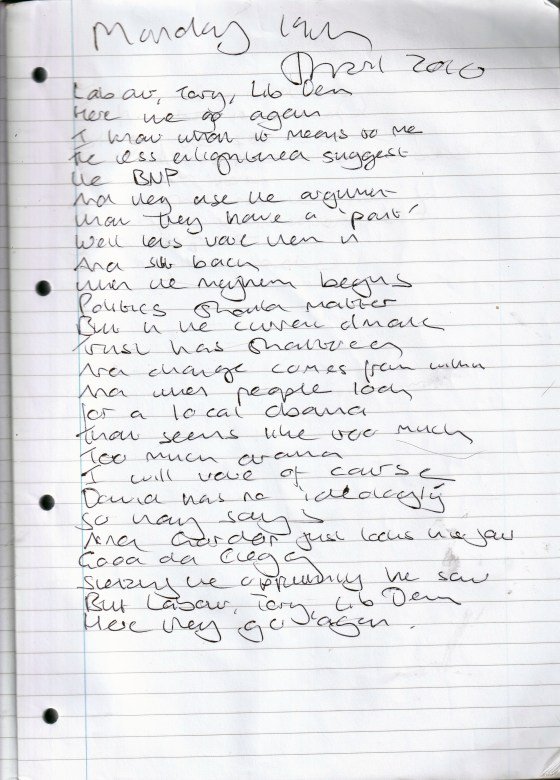 Monday 19th
April 2010
Labour, Tory, Lib Dem
Here we go again
I know what it means to me
The less enlightened suggest
the BNP
And they use the argument
that they have a 'point'
Well lets vote them in
And sit back
when the mayhem begins
Politics should matter
But in the current climate
Trust has shattered
And change comes from within
And when people look
for a local obama
That seems like too much
Too much drama
I will vote of course
David has no 'ideology'
so they say
And Gordon just looks
Good old Clegg
seizing the opportunity he saw
But Labour, Tory, Lib Dem
Here they go again.